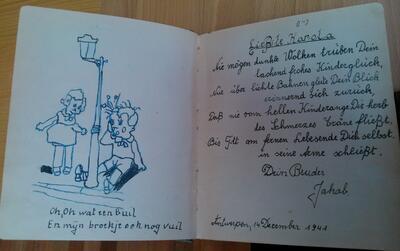 Oh, Oh wat een buil
En mijn broekje ook nog vuil
Liebste Karola
Nie mögen dunkle Wolken trüben Dein
lachend frohes Kinderglück,
Nie über lichte Bahnen gleite Dein Blick
erinnernd sich zurück,
Daß nie vom hellen Kinderauge Dir herb
des Schmerzes Träne fließt.
Bis Gott am fernen Lebesende Dich selbst
in seine Arme schließt.
Dein Bruder
Jakob
Antwerpen, 14 Dezember 1941